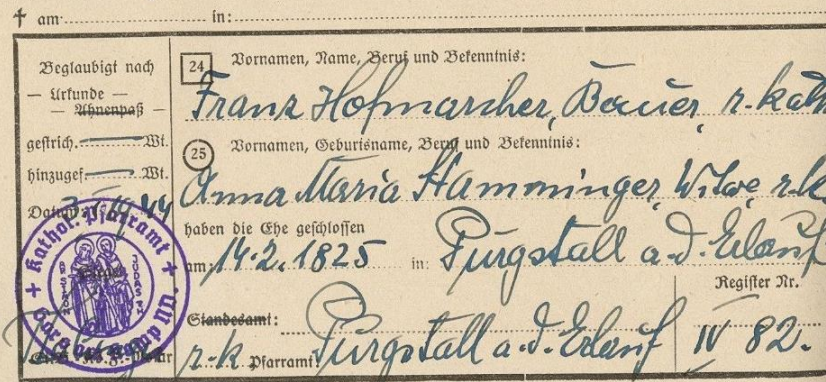 ✝ am in:
Beglaubigt nach
— Urkunde —
— Ahnenpaß —
gestrich. Wt.
hinzugef. Wt.
24 Vornamen, Name, Beruf und Bekenntnis:
Franz Hofmarcher, Bauer, r. kath
25 Vornamen, Geburtsname, Beruf und Bekenntnis:
Anna Maria Hamminger, Witwe, r. k.
haben die Ehe geschlossen
am 14.2.1825 in: Purgstall a. d. Erlauf
Register Nr.
Standesamt:
r. k. Pfarramt: Purgstall a. d. Erlauf IV 82.
+ Kathol. Pfarramt +
JUDAS